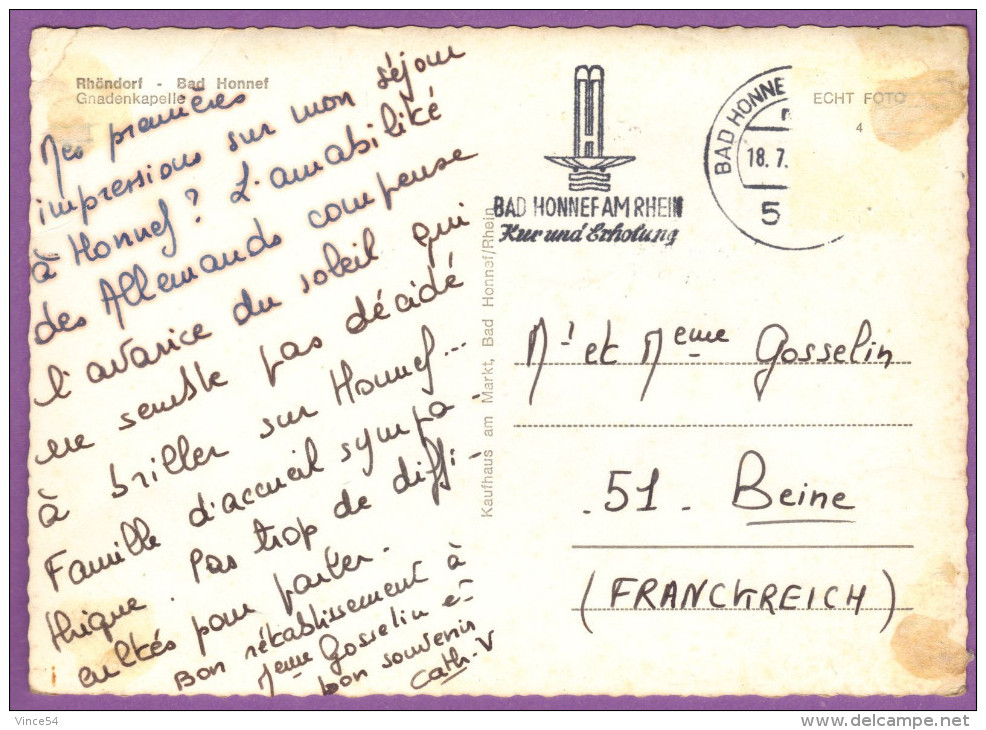 Rhöndorf - Bad Honnef
Gnadenkapelle
Mes premières
impressions sur mon séjour
à Honnef ? L'amabilité
des Allemands compense
l'avarice du soleil qui
ne semble pas décidé
à briller sur Honnef...
Famille d'accueil sympa-
thique. Pas trop de diffi-
cultés pour parler.
Bon rétablissement à
Meme Gosselin et
bon souvenir
Cath. V
Kaufhaus am Markt, Bad Honnef/Rhein
BAD HONNEF AM RHEIN
Kur und Erholung
BAD HONNE
18. 7.
5
ECHT FOTO
4
Mr et Meme Gosselin
. 51 . Beine
(FRANCKREICH)
Vince54
www.delcampe.net